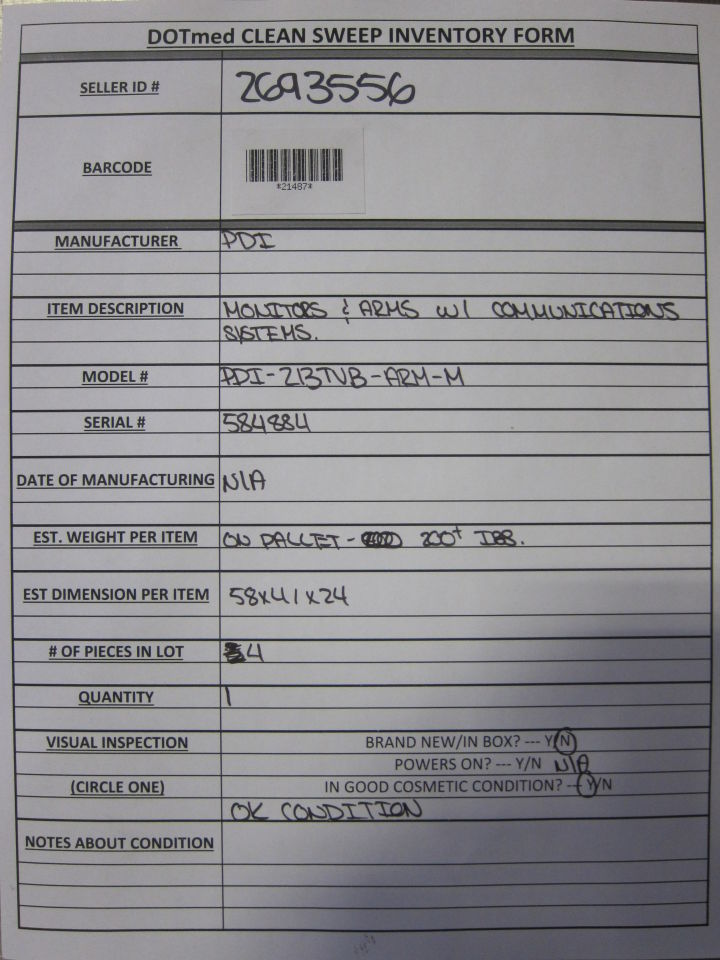 DOTmed CLEAN SWEEP INVENTORY FORM
SELLER ID # 2693556
BARCODE
*21487*
MANUFACTURER PDI
ITEM DESCRIPTION MONITORS & ARMS W/ COMMUNICATIONS
SYSTEMS.
MODEL # PDI-213TVB-ARM-M
SERIAL # 584884
DATE OF MANUFACTURING N/A
EST. WEIGHT PER ITEM ON PALLET- 200+ lBS.
EST DIMENSION PER ITEM 58x41x24
# OF PIECES IN LOT 4
QUANTITY 1
VISUAL INSPECTION BRAND NEW/IN BOX? --- Y/N
POWERS ON? --- Y/N N/A
(CIRCLE ONE) IN GOOD COSMETIC CONDITION? --- Y/N
OK CONDITION
NOTES ABOUT CONDITION